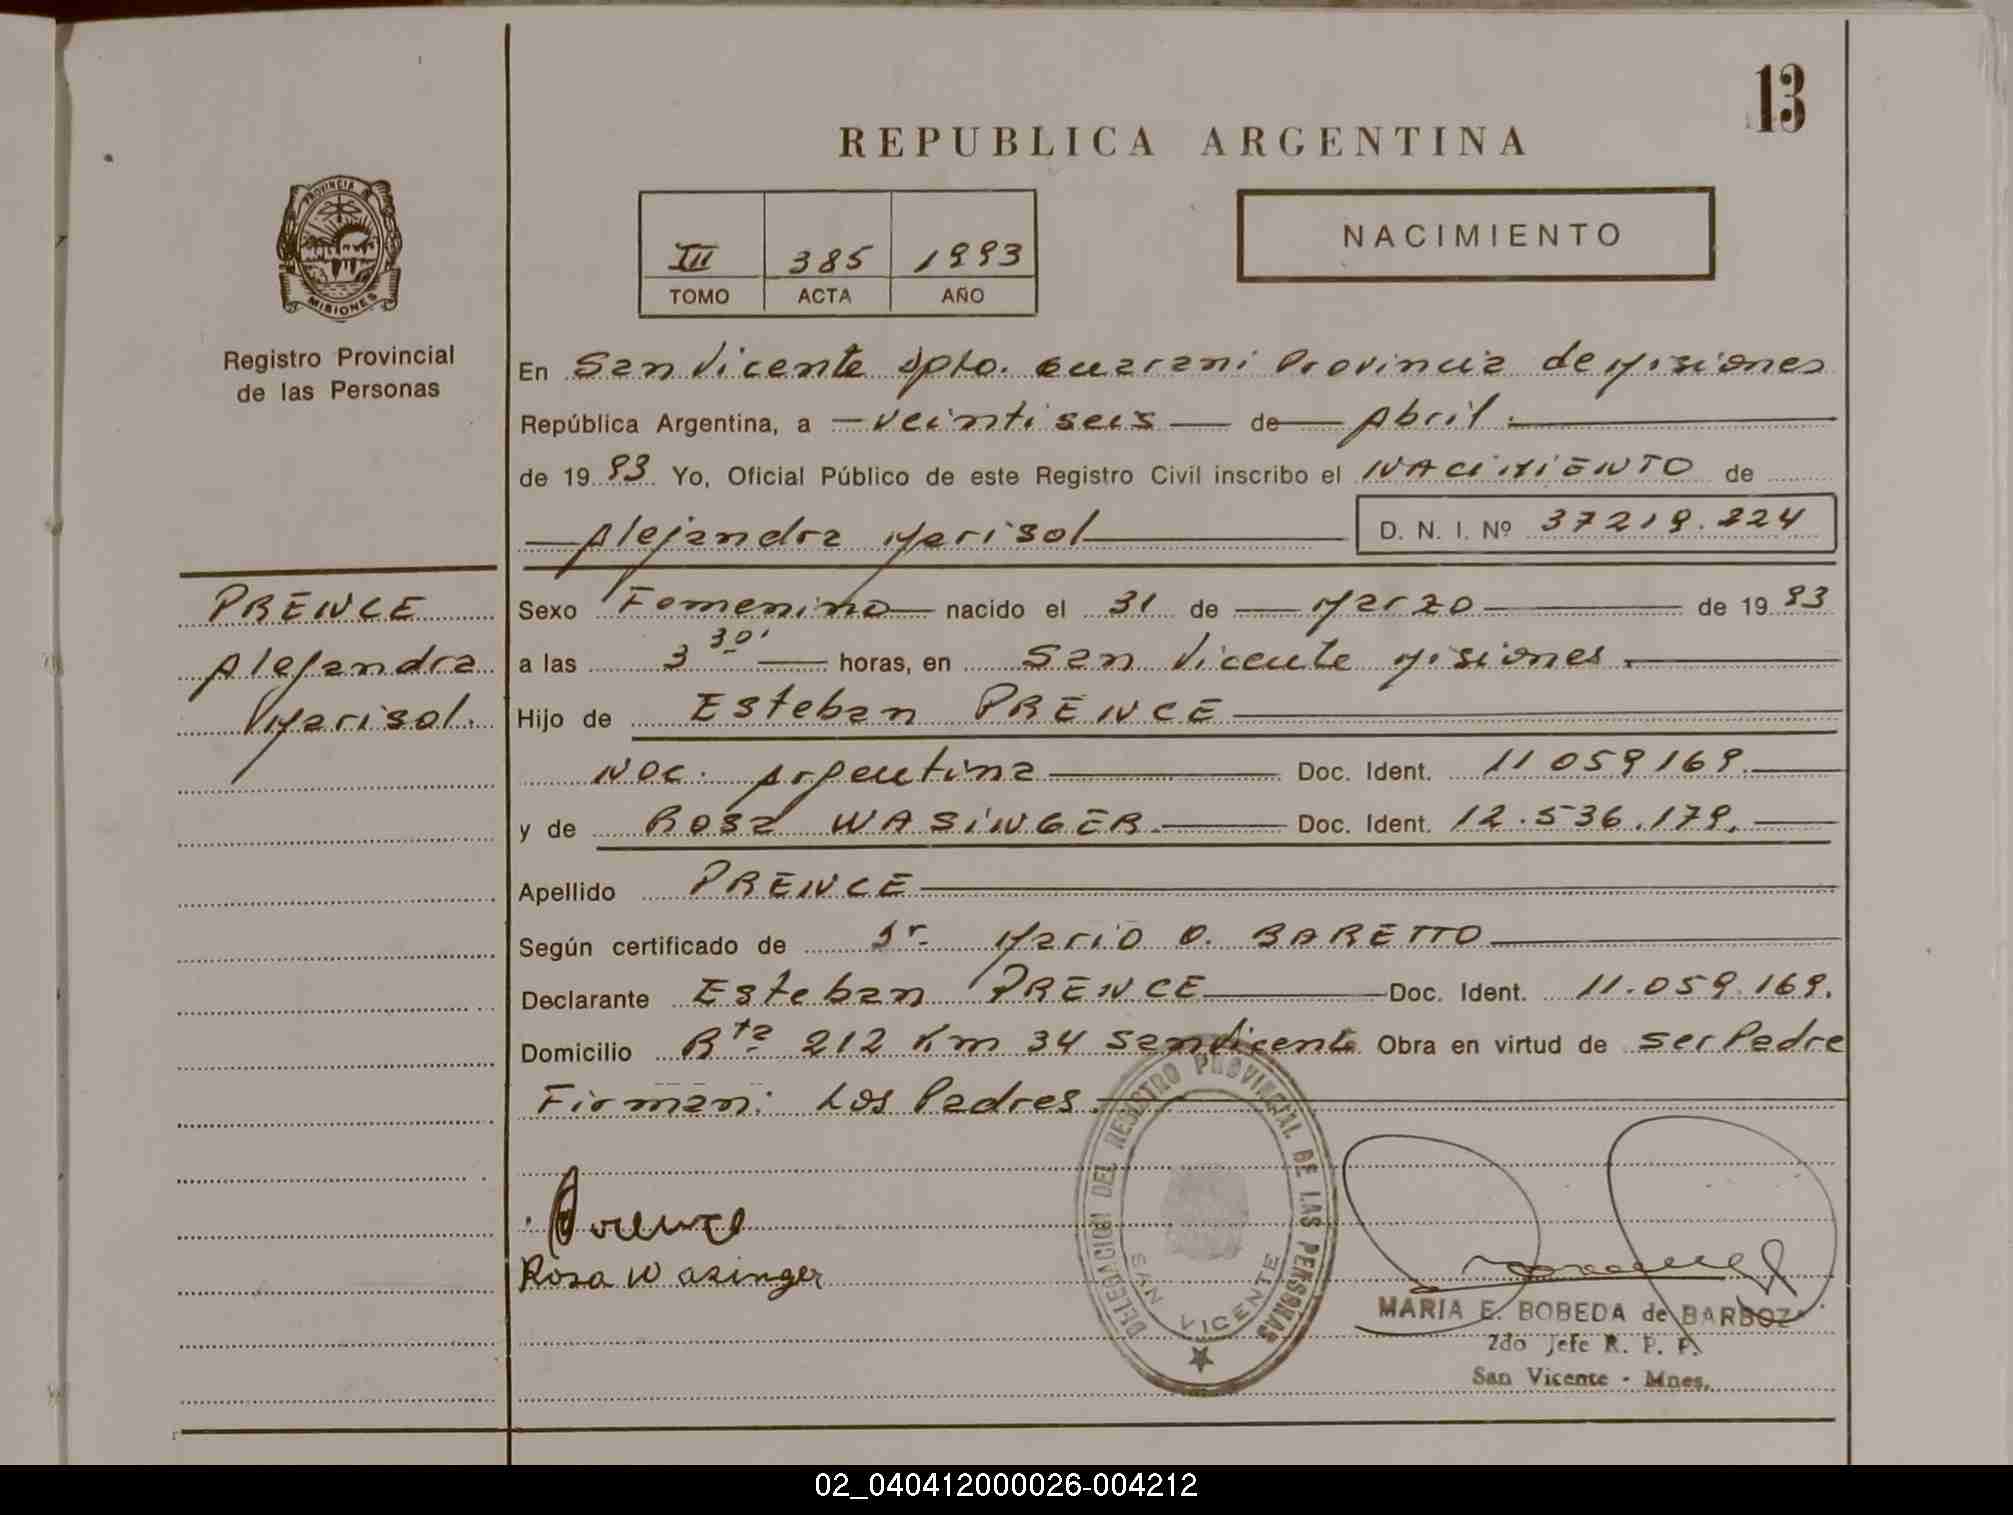 13
REPUBLICA ARGENTINA
PROVINCIA
MISIONES
Registro Provincial
de las Personas
III 385 1993
TOMO ACTA AÑO
NACIMIENTO
En San Vicente Dpto. Guarani Provincia de Misiones
República Argentina, a veintiseis de Abril.
de 19 93 Yo, Oficial Público de este Registro Civil inscribo el NACIMIENTO de
Alejandra Marisol D. N. I. Nº 37219.224
PRENCE
Alejandra
Marisol.
Sexo Femenino nacido el 31 de Marzo de 19 93
a las 3 30' horas, en San Vicente Misiones.
Hijo de Esteban PRENCE
Nac. Argentina Doc. Ident. 11 059 169.
y de Rosa WASINGER. Doc. Ident. 12.536.179.
Apellido PRENCE
Según certificado de Dr. Mario O. BARETTO
Declarante Esteban PRENCE Doc. Ident. 11.059.169.
Domicilio Rta 212 Km 34 San Vicente Obra en virtud de ser Padre
Firman: Los Padres.
Prence
Rosa Wasinger
DELEGACION DEL REGISTRO PROVINCIAL DE LAS PERSONAS
SAN VICENTE
MARIA E. BOBEDA de BARBOZA
2do Jefe R. P. P.
San Vicente - Mnes.
02_040412000026-004212